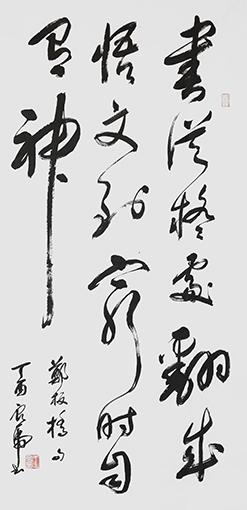 書從疑處翻成
悟文到窮时自
有神
鄭板橋句
丁酉 书